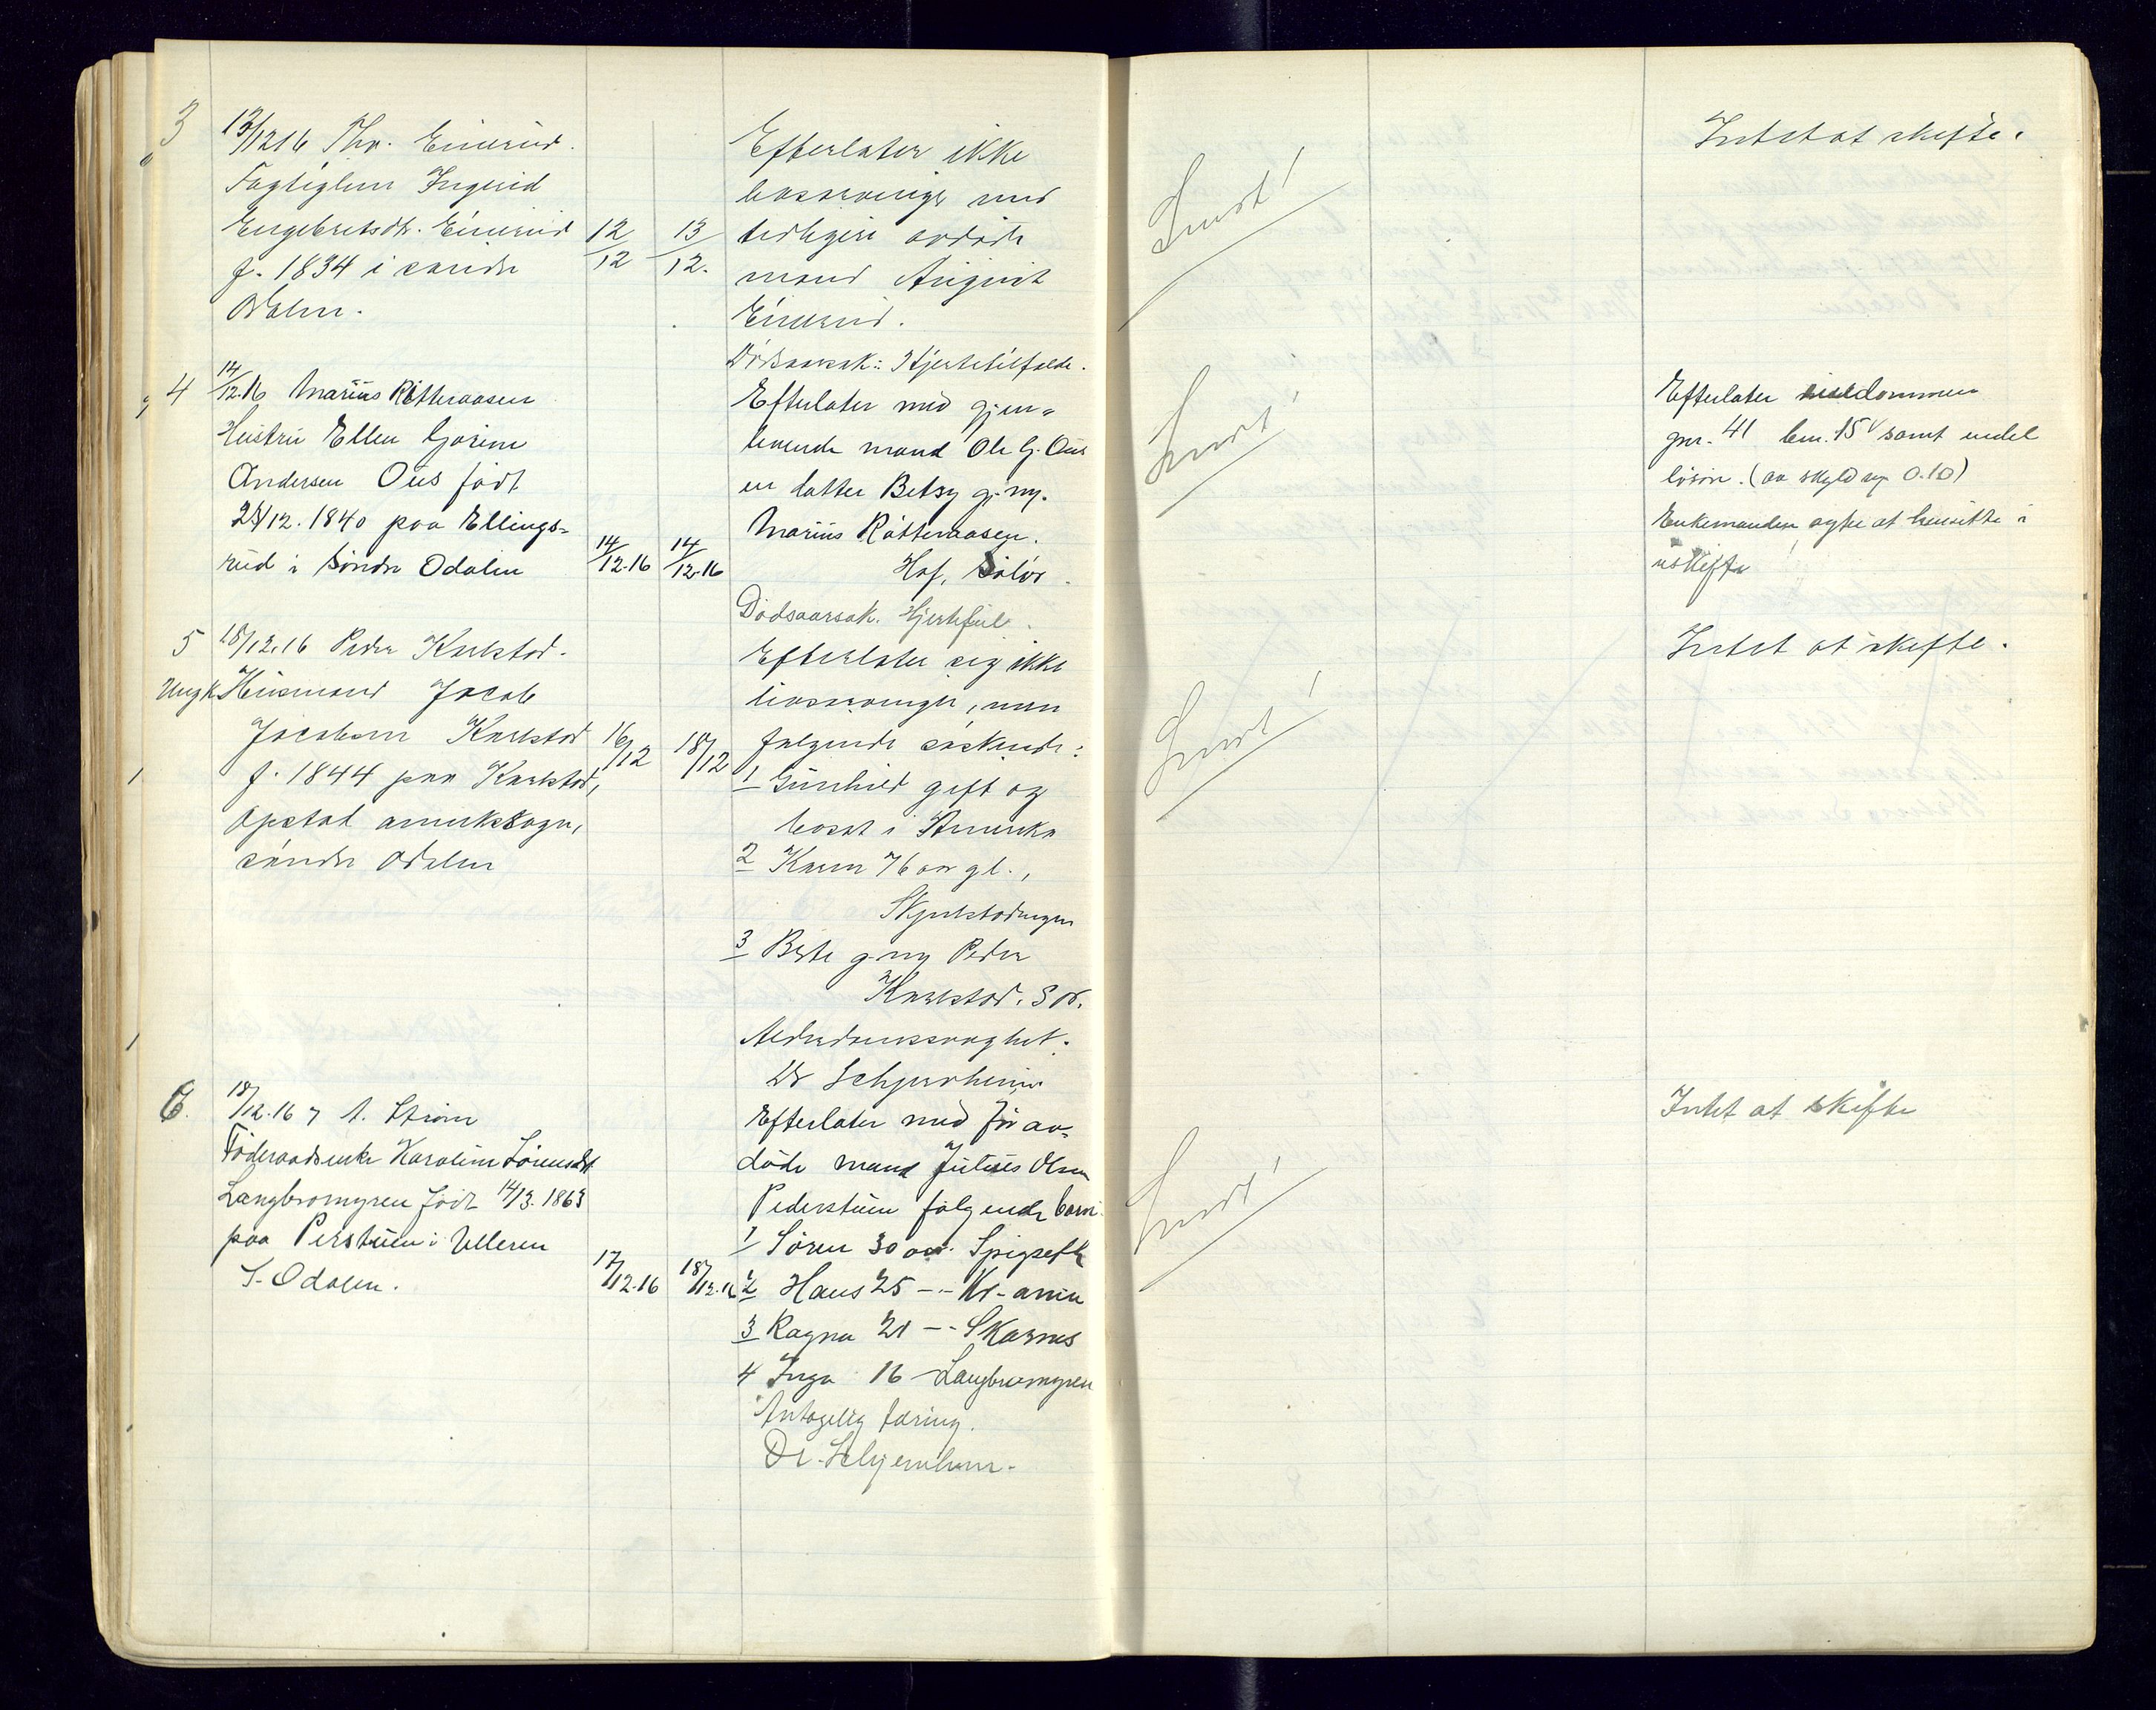 3
13/12 16 Thv. Einerud.
Fattiglem Ingerid
Engebretsdtr. Einerud
f. 1834 i søndre
Odalen.
12/12
13/12.
Efterlater ikke
livsarvinger med
tidligere avdøde
mand August
Einerud.
Dødsaarsak: Hjertetilfælde.
Sendt!
Intet at skifte.
4
14/12.16 Marius Råtteraasen
Hustru Ellen Gorine
Andersen Ous født
28/12. 1840 paa Ellings-
rud i Søndre Odalen
14/12.16
14/12.16
Efterlater med gjen-
levende mand Ole G. Ous
en datter Betsy g. m.
Marius Råtteraasen.
Hof, Solør.
Dødsaarsak. Hjertefeil.
Sendt!
Efterlater eiendommen
gnr. 41 bnr. 15 samt endel
løsøre. (av skyld mrk. 0.10)
Enkemanden agter at hensitte i
uskifte
5
18/12.16 Peder Karlstad.
Ungk. Husmand Jacob
Jacobsen Karlstad
f. 1844 paa Karlstad,
Opstad annekssogn,
søndre Odalen
16/12
18/12
Efterlater sig ikke
livsarvinger, men
følgende søskende:
1 Gunhild gift og
bosat i Amerika
2 Karen 76 aar gl.,
3 Berte g. m. Peder
Karlstad. S. O.
Alderdomssvaghet.
Dr Schjerheim
Sendt!
Intet at skifte.
6.
18/12.16 A. Strøm
Føderaadsenke Karoline Sørensdt
Langbromyren født 14/3. 1863
paa Perstuen i Ulleren
S. Odalen.
17/12.16
18/12.16
Efterlater med før av-
døde mand Julius Olsen
Pederstuen følgende barn:
1 Søren 30 aar. Spigseth
2 Hans 25 -"- Kr-ania
3 Ragna 21 -"- Skarnes
4 Inga 16 Langbromyren
Antagelig tæring.
Dr. Schjerheim.
Sendt!
Intet at skifte